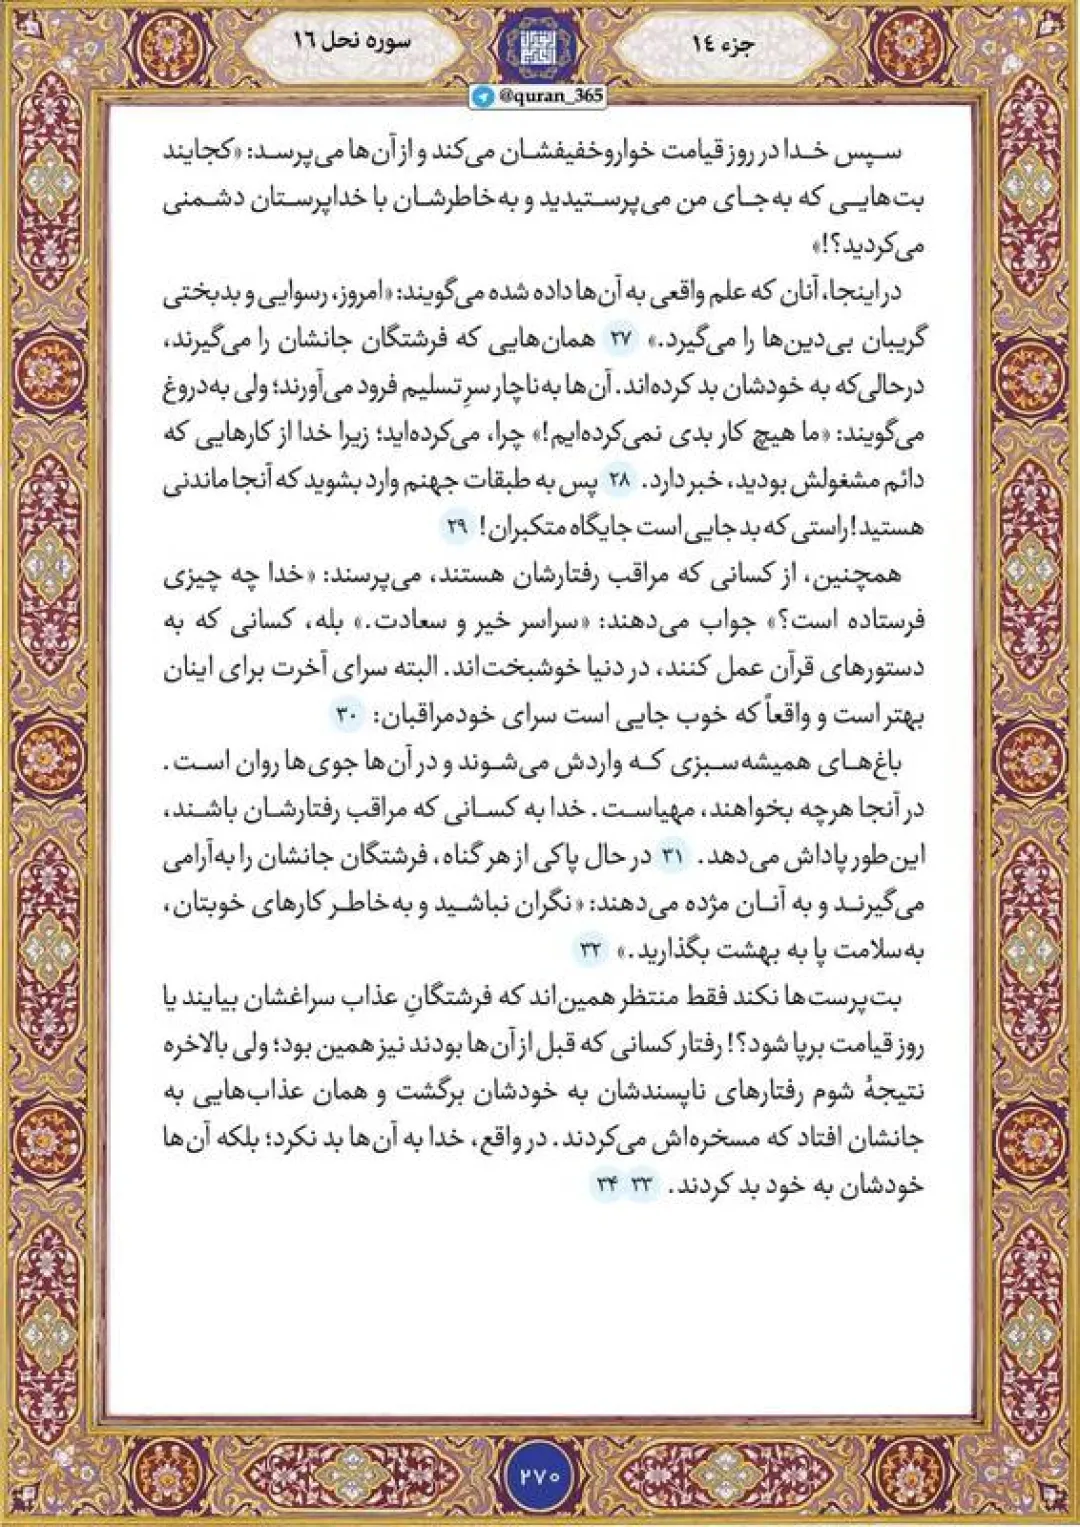 جزء ١٤
سوره نحل ١٦
@quran_365
سپس خدا در روز قیامت خوار و خفیفشان می‌کند و از آن‌ها می‌پرسد: «کجایند
بت‌هایی که به جای من می‌پرستیدید و به خاطرشان با خداپرستان دشمنی
می‌کردید؟!»
در اینجا، آنان که علم واقعی به آن‌ها داده شده می‌گویند: «امروز، رسوایی و بدبختی
گریبان بی‌دین‌ها را می‌گیرد.» ۲۷ همان‌هایی که فرشتگان جانشان را می‌گیرند،
درحالی‌که به خودشان بد کرده‌اند. آن‌ها به‌ناچار سرِ تسلیم فرود می‌آورند؛ ولی به‌دروغ
می‌گویند: «ما هیچ کار بدی نمی‌کرده‌ایم!» چرا، می‌کرده‌اید؛ زیرا خدا از کارهایی که
دائم مشغولش بودید، خبر دارد. ۲۸ پس به طبقات جهنم وارد بشوید که آنجا ماندنی
هستید! راستی که بد جایی است جایگاه متکبران! ۲۹
همچنین، از کسانی که مراقب رفتارشان هستند، می‌پرسند: «خدا چه چیزی
فرستاده است؟» جواب می‌دهند: «سراسر خیر و سعادت.» بله، کسانی که به
دستورهای قرآن عمل کنند، در دنیا خوشبخت‌اند. البته سرای آخرت برای اینان
بهتر است و واقعاً که خوب جایی است سرای خودمراقبان: ۳۰
باغ‌های همیشه‌سبزی که واردش می‌شوند و در آن‌ها جوی‌ها روان است.
در آنجا هرچه بخواهند، مهیاست. خدا به کسانی که مراقب رفتارشان باشند،
این‌طور پاداش می‌دهد. ۳۱ در حال پاکی از هر گناه، فرشتگان جانشان را به‌آرامی
می‌گیرند و به آنان مژده می‌دهند: «نگران نباشید و به خاطر کارهای خوبتان،
به‌سلامت پا به بهشت بگذارید.» ۳۲
بت‌پرست‌ها نکند فقط منتظر همین‌اند که فرشتگانِ عذاب سراغشان بیایند یا
روز قیامت برپا شود؟! رفتار کسانی که قبل از آن‌ها بودند نیز همین بود؛ ولی بالاخره
نتیجهٔ شوم رفتارهای ناپسندشان به خودشان برگشت و همان عذاب‌هایی به
جانشان افتاد که مسخره‌اش می‌کردند. در واقع، خدا به آن‌ها بد نکرد؛ بلکه آن‌ها
خودشان به خود بد کردند. ۳۳ ۳۴
۲۷۰